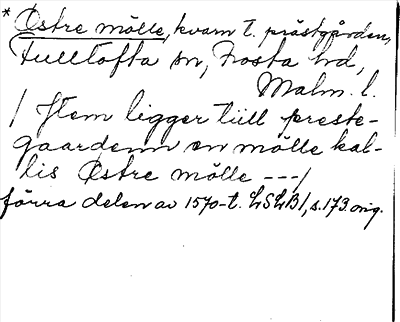 * Østre mölle, kvarn t. prästgården,
Fulltofta sn, Frosta hd,
Malm. l.
/ Item ligger till preste-
gaardenn en mölle kal-
lis Østre mölle ---/
förra delen av 1570-t. LSLB1, s. 173. orig.